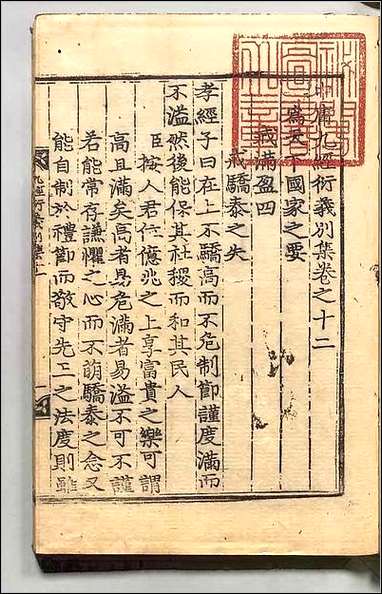 中庸九經衍義別集卷之十二
爲天下國家之要
戒滿盈四
戒驕泰之失
孝經子曰在上不驕高而不危制節謹度滿而
不溢然後能保其社稷而和其民人
臣按人君位億兆之上享富貴之樂可謂
高且滿矣高者易危滿者易溢不可不謹
若能常存謙懼之心而不萌驕泰之念又
能自制於禮節而敬守先王之法度則雖
九經衍義別集十二